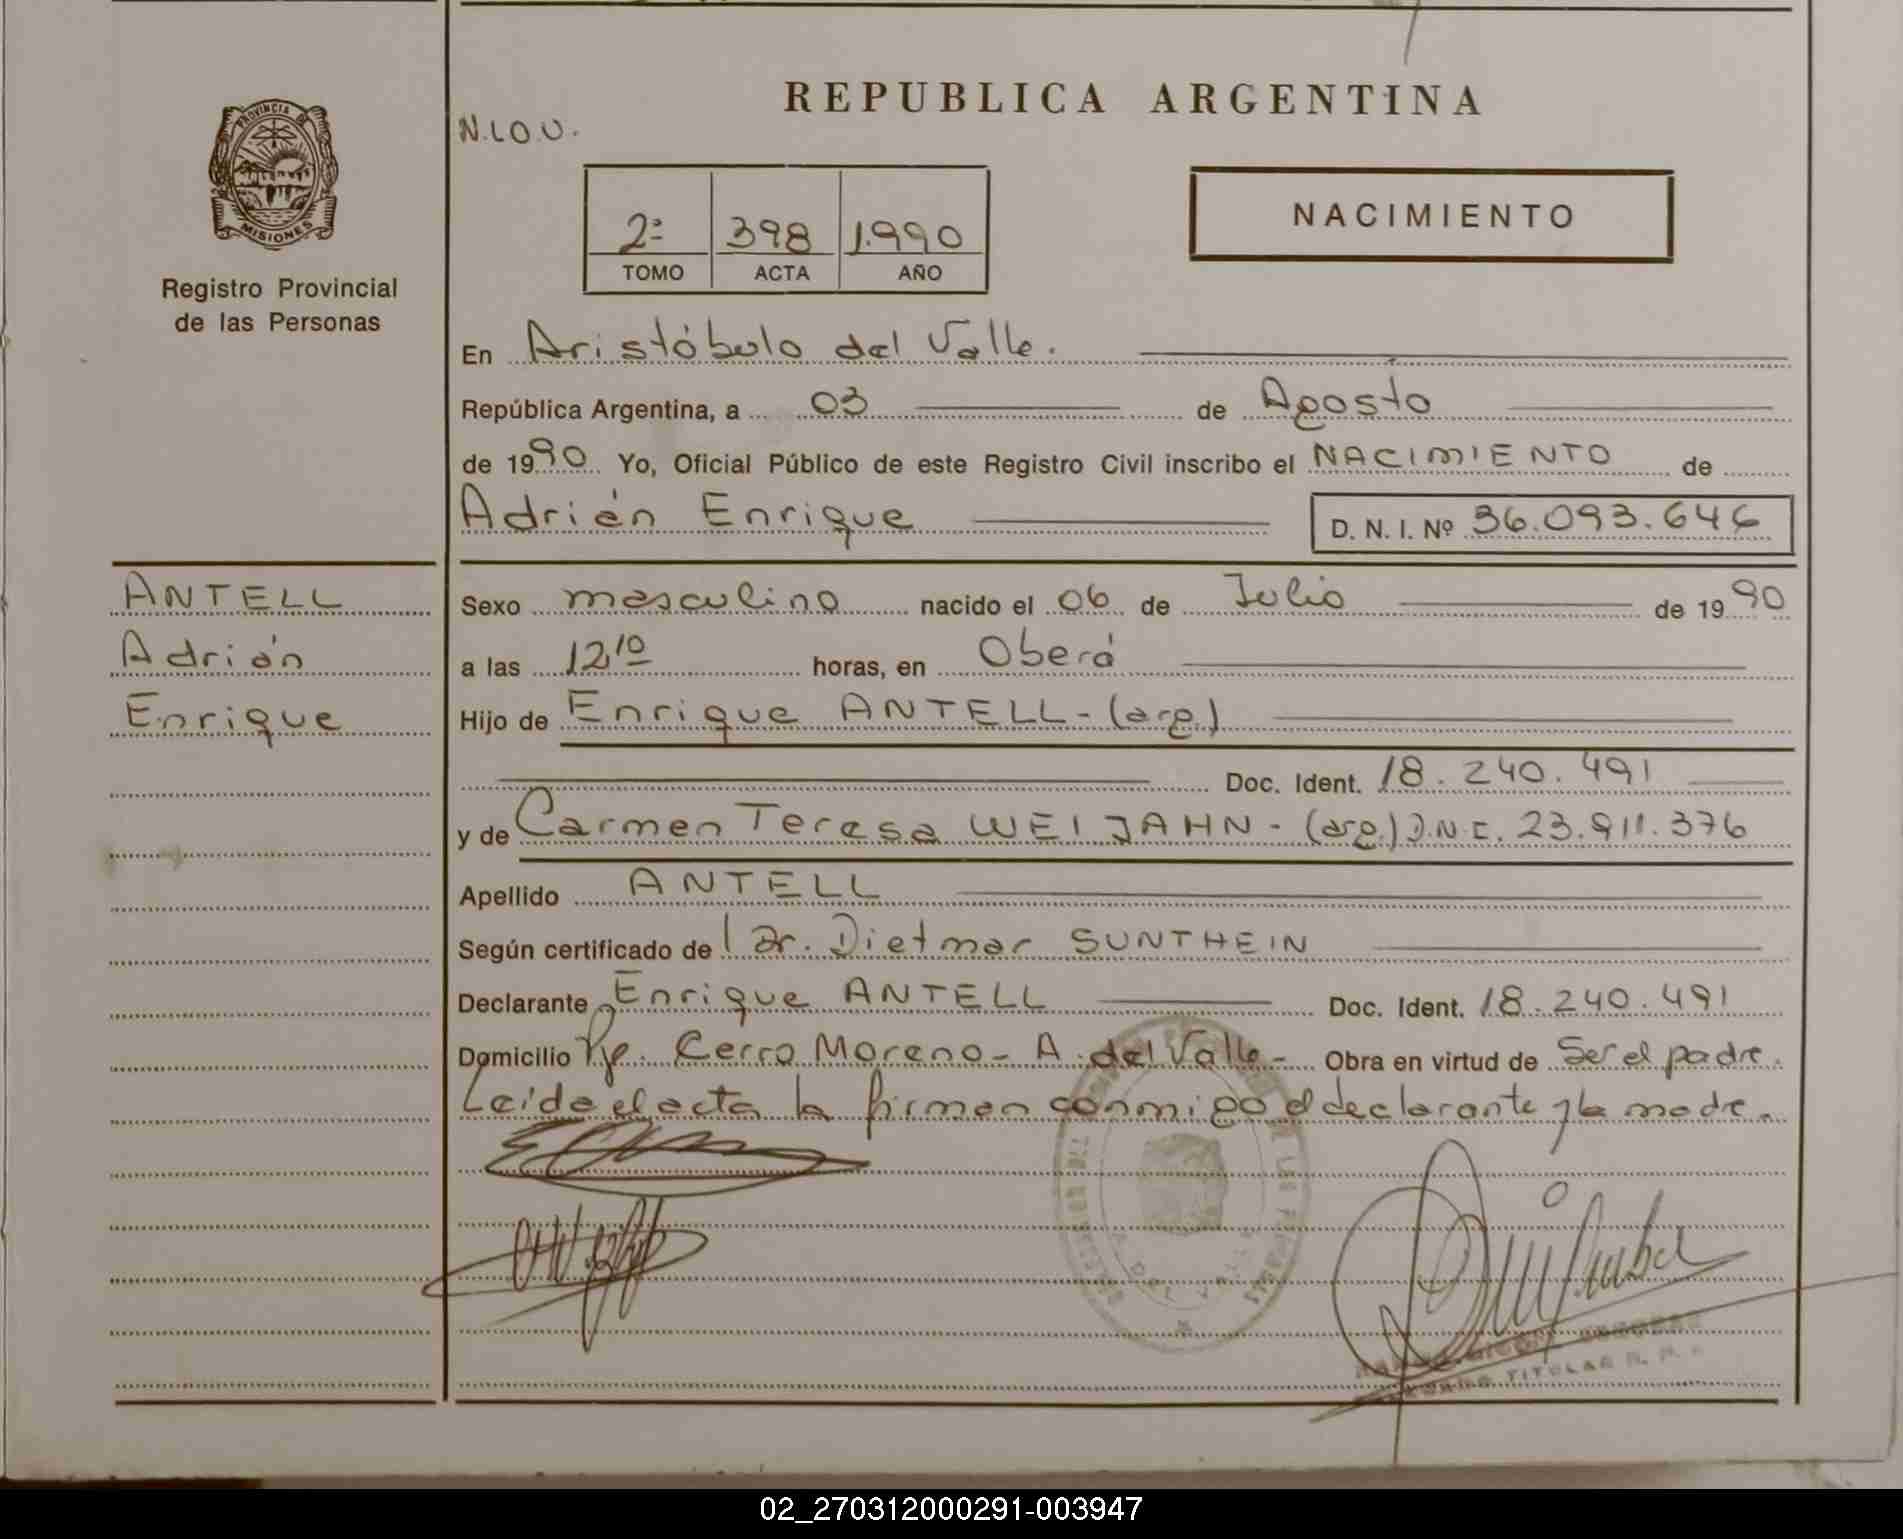 REPUBLICA ARGENTINA
PROVINCIA DE
MISIONES
Registro Provincial
de las Personas
N.LO.U.
2ª 398 1.990
TOMO ACTA AÑO
NACIMIENTO
En Aristóbulo del Valle.
República Argentina, a 03 de Agosto
de 1990 Yo, Oficial Público de este Registro Civil inscribo el NACIMIENTO de
Adrián Enrique D. N. I. Nº 36.093.646
ANTELL
Adrián
Enrique
Sexo masculino nacido el 06 de Julio de 1990
a las 12 10 horas, en Oberá
Hijo de Enrique ANTELL-(arg.)
Doc. Ident. 18.240.491
y de Carmen Teresa WEIJAHN-(arg.) D.N.I. 23.911.376
Apellido ANTELL
Según certificado de l Dr. Dietmar SUNTHEIN
Declarante Enrique ANTELL Doc. Ident. 18.240.491
Domicilio Pje. Cerro Moreno- A. del Valle- Obra en virtud de Ser el padre.
Leida el acta la firman conmigo el declarante y la madre.
TITULAR
02_270312000291-003947